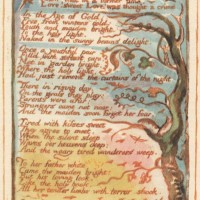 Love! sweet Love! was thought a crime
In the Age of Gold,
Free from winters cold:
Youth and maiden bright,
To the holy light,
Naked in the sunny beams delight.
Once a youthful pair
Fill'd with softest care:
Met in garden bright,
Where the holy light,
Had just removd the curtains of the night.
There in rising day,
On the grass they play:
Parents were afar:
Strangers came not near:
And the maiden soon forgot her fear.
Tired with kisses sweet
They agree to meet,
When the silent sleep
Waves o'er heavens deep:
And the weary tired wanderers weep.
To her father white
Came the maiden bright:
But his loving look,
Like the holy book,
All her tender limbs with terror shook.